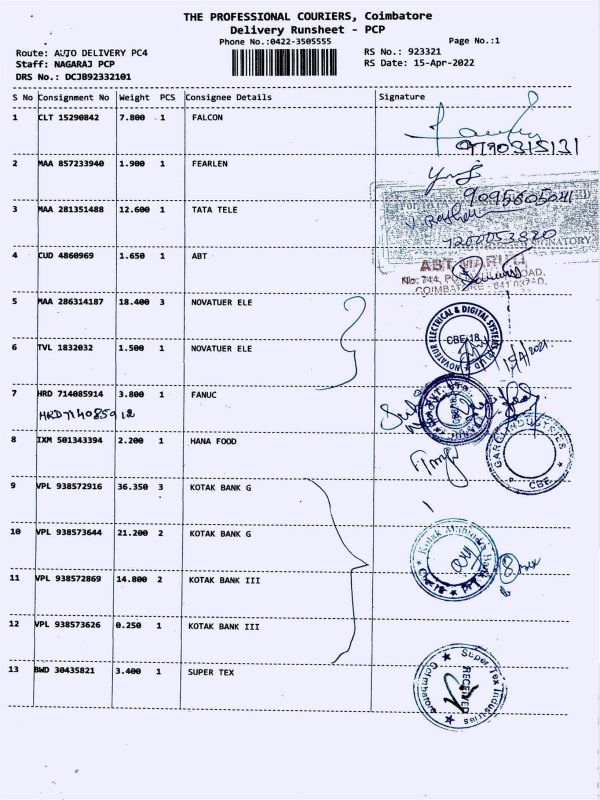 THE PROFESSIONAL COURIERS, Coimbatore
Delivery Runsheet - PCP
Phone No.:0422-3505555
Page No.:1
Route: AUTO DELIVERY PC4
RS No.: 923321
Staff: NAGARAJ PCP
RS Date: 15-Apr-2022
DRS No.: DCJB92332101
S No Consignment No Weight PCS Consignee Details Signature
1 CLT 15290842 7.800 1 FALCON
9790315131
2 MAA 857233940 1.900 1 FEARLEN
9095605041
3 MAA 281351488 12.600 1 TATA TELE
7200053820
SIGNATORY
4 CUD 4860969 1.650 1 ABT
ABT MARUTI
COIMBATORE - 641 037
5 MAA 286314187 18.400 3 NOVATUER ELE
NOVATEUR ELECTRICAL & DIGITAL SYSTEMS
CBE-18
6 TVL 1832032 1.500 1 NOVATUER ELE
15/4/2021
7 HRD 714085914 3.800 1 FANUC
HRD714085912
8 IXM 501343394 2.200 1 HANA FOOD
INDUSTRIES
CBE
9 VPL 938572916 36.350 3 KOTAK BANK G
10 VPL 938573644 21.200 2 KOTAK BANK G
Kotak Mahindra
11 VPL 938572869 14.800 2 KOTAK BANK III
12 VPL 938573626 0.250 1 KOTAK BANK III
13 BWD 30435821 3.400 1 SUPER TEX
Super Tex Industries
RECEIVED
Coimbatore